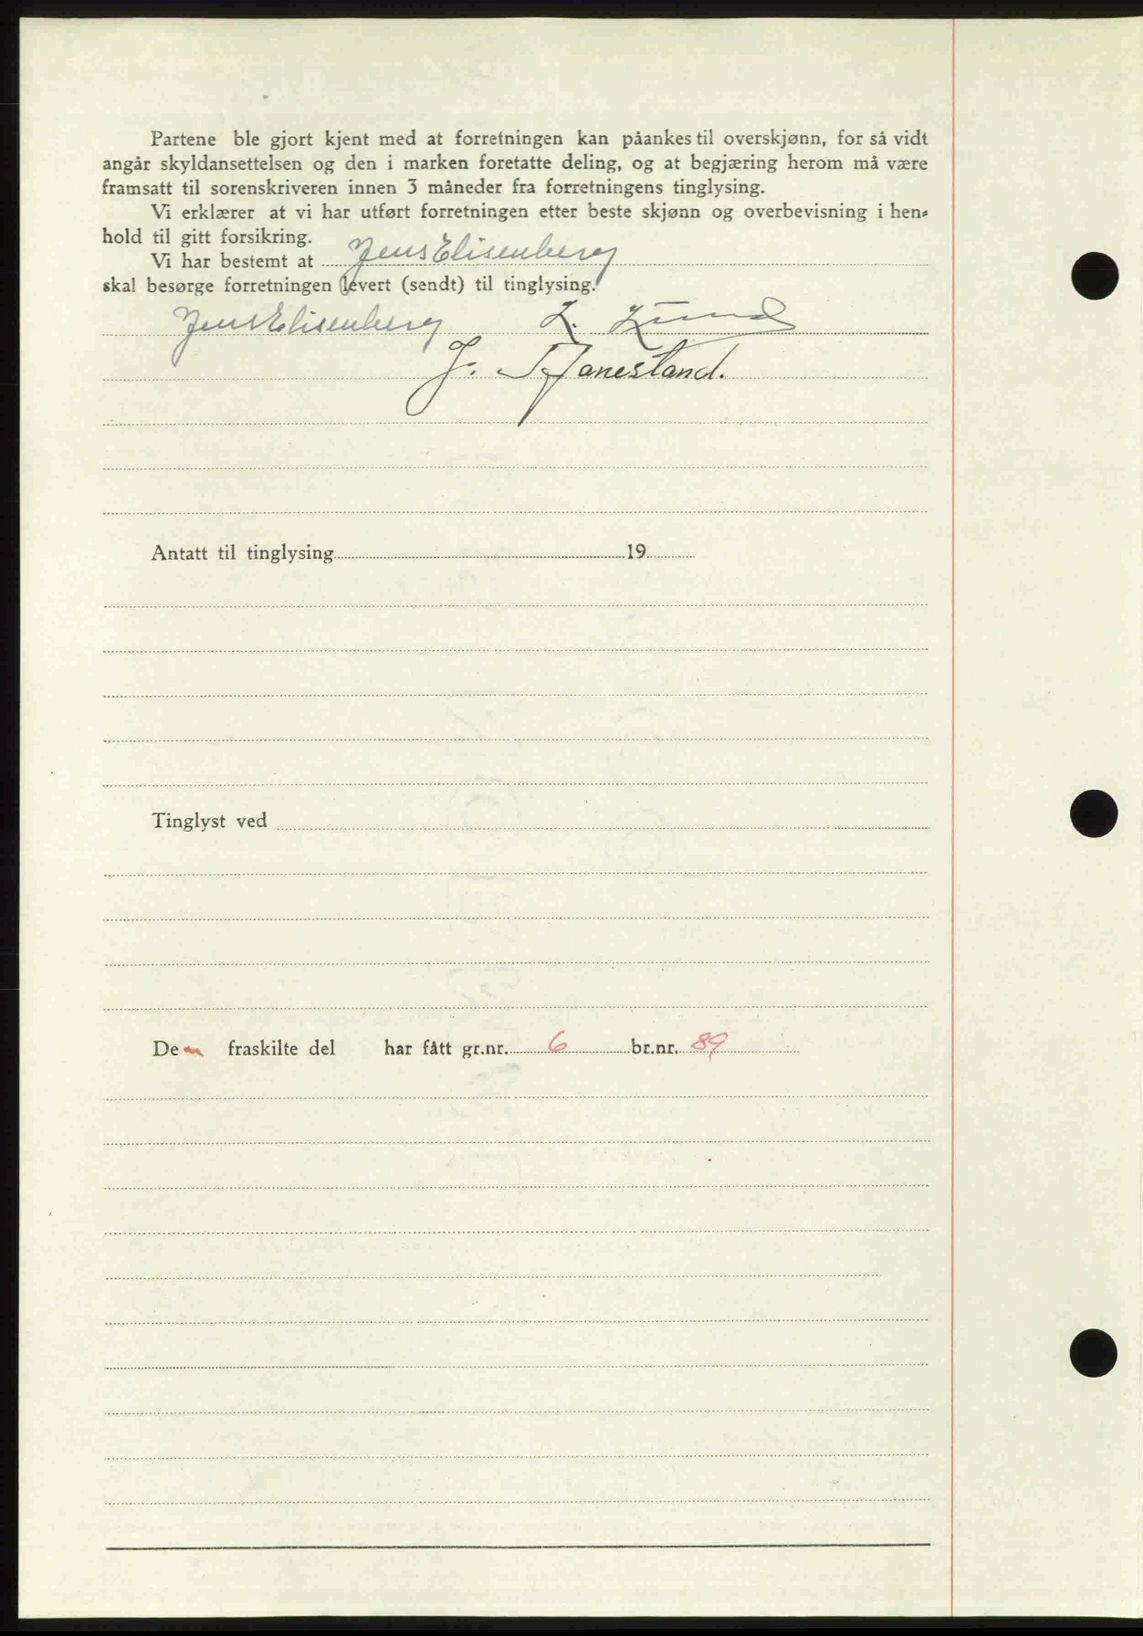 Partene ble gjort kjent med at forretningen kan påankes til overskjønn, for så vidt
angår skyldansettelsen og den i marken foretatte deling, og at begjæring herom må være
framsatt til sorenskriveren innen 3 måneder fra forretningens tinglysing.
Vi erklærer at vi har utført forretningen etter beste skjønn og overbevisning i hen-
hold til gitt forsikring.
Vi har bestemt at Jens Elisenberg
skal besørge forretningen levert (sendt) til tinglysing.
Jens Elisenberg L. Lund
J. Tjanestand.
Antatt til tinglysing 19
Tinglyst ved
Den fraskilte del har fått gr.nr. 6 br.nr. 89